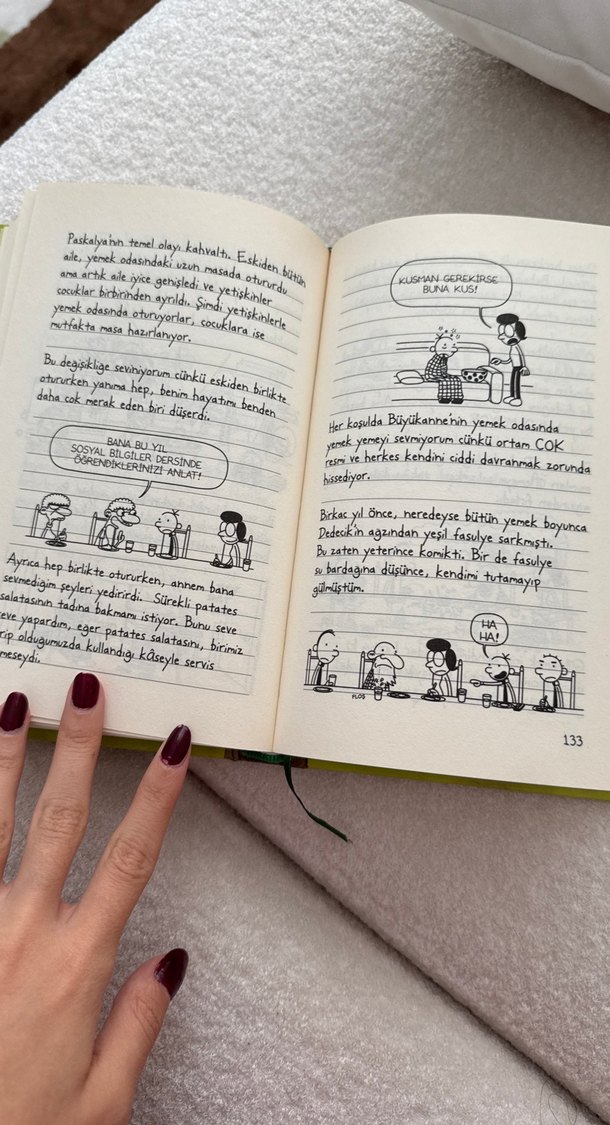 Paskalya'nın temel olayı kahvaltı. Eskiden bütün
aile, yemek odasındaki uzun masada otururdu
ama artık aile iyice genişledi ve yetişkinler
çocuklar birbirinden ayrıldı. Şimdi yetişkinlerle
yemek odasında oturuyorlar, çocuklara ise
mutfakta masa hazırlanıyor.
Bu değişikliğe seviniyorum çünkü eskiden birlikte
otururken yanıma hep, benim hayatımı benden
daha çok merak eden biri düşerdi.
BANA BU YIL
SOSYAL BİLGİLER DERSİNDE
ÖĞRENDİKLERİNİZİ ANLAT!
Ayrıca hep birlikte otururken, annem bana
sevmediğim şeyleri yedirirdi. Sürekli patates
salatasının tadına bakmamı istiyor. Bunu seve
seve yapardım, eğer patates salatasını, birimiz
olduğumuzda kullandığı kâseyle servis
meseydi.
KUSMAN GEREKİRSE
BUNA KUS!
Her koşulda Büyükanne'nin yemek odasında
yemek yemeyi sevmiyorum çünkü ortam ÇOK
resmi ve herkes kendini ciddi davranmak zorunda
hissediyor.
Birkaç yıl önce, neredeyse bütün yemek boyunca
Dedecik'in ağzından yeşil fasulye sarkmıştı.
Bu zaten yeterince komikti. Bir de fasulye
su bardağına düşünce, kendimi tutamayıp
gülmüştüm.
HA
HA!
PLOP
133